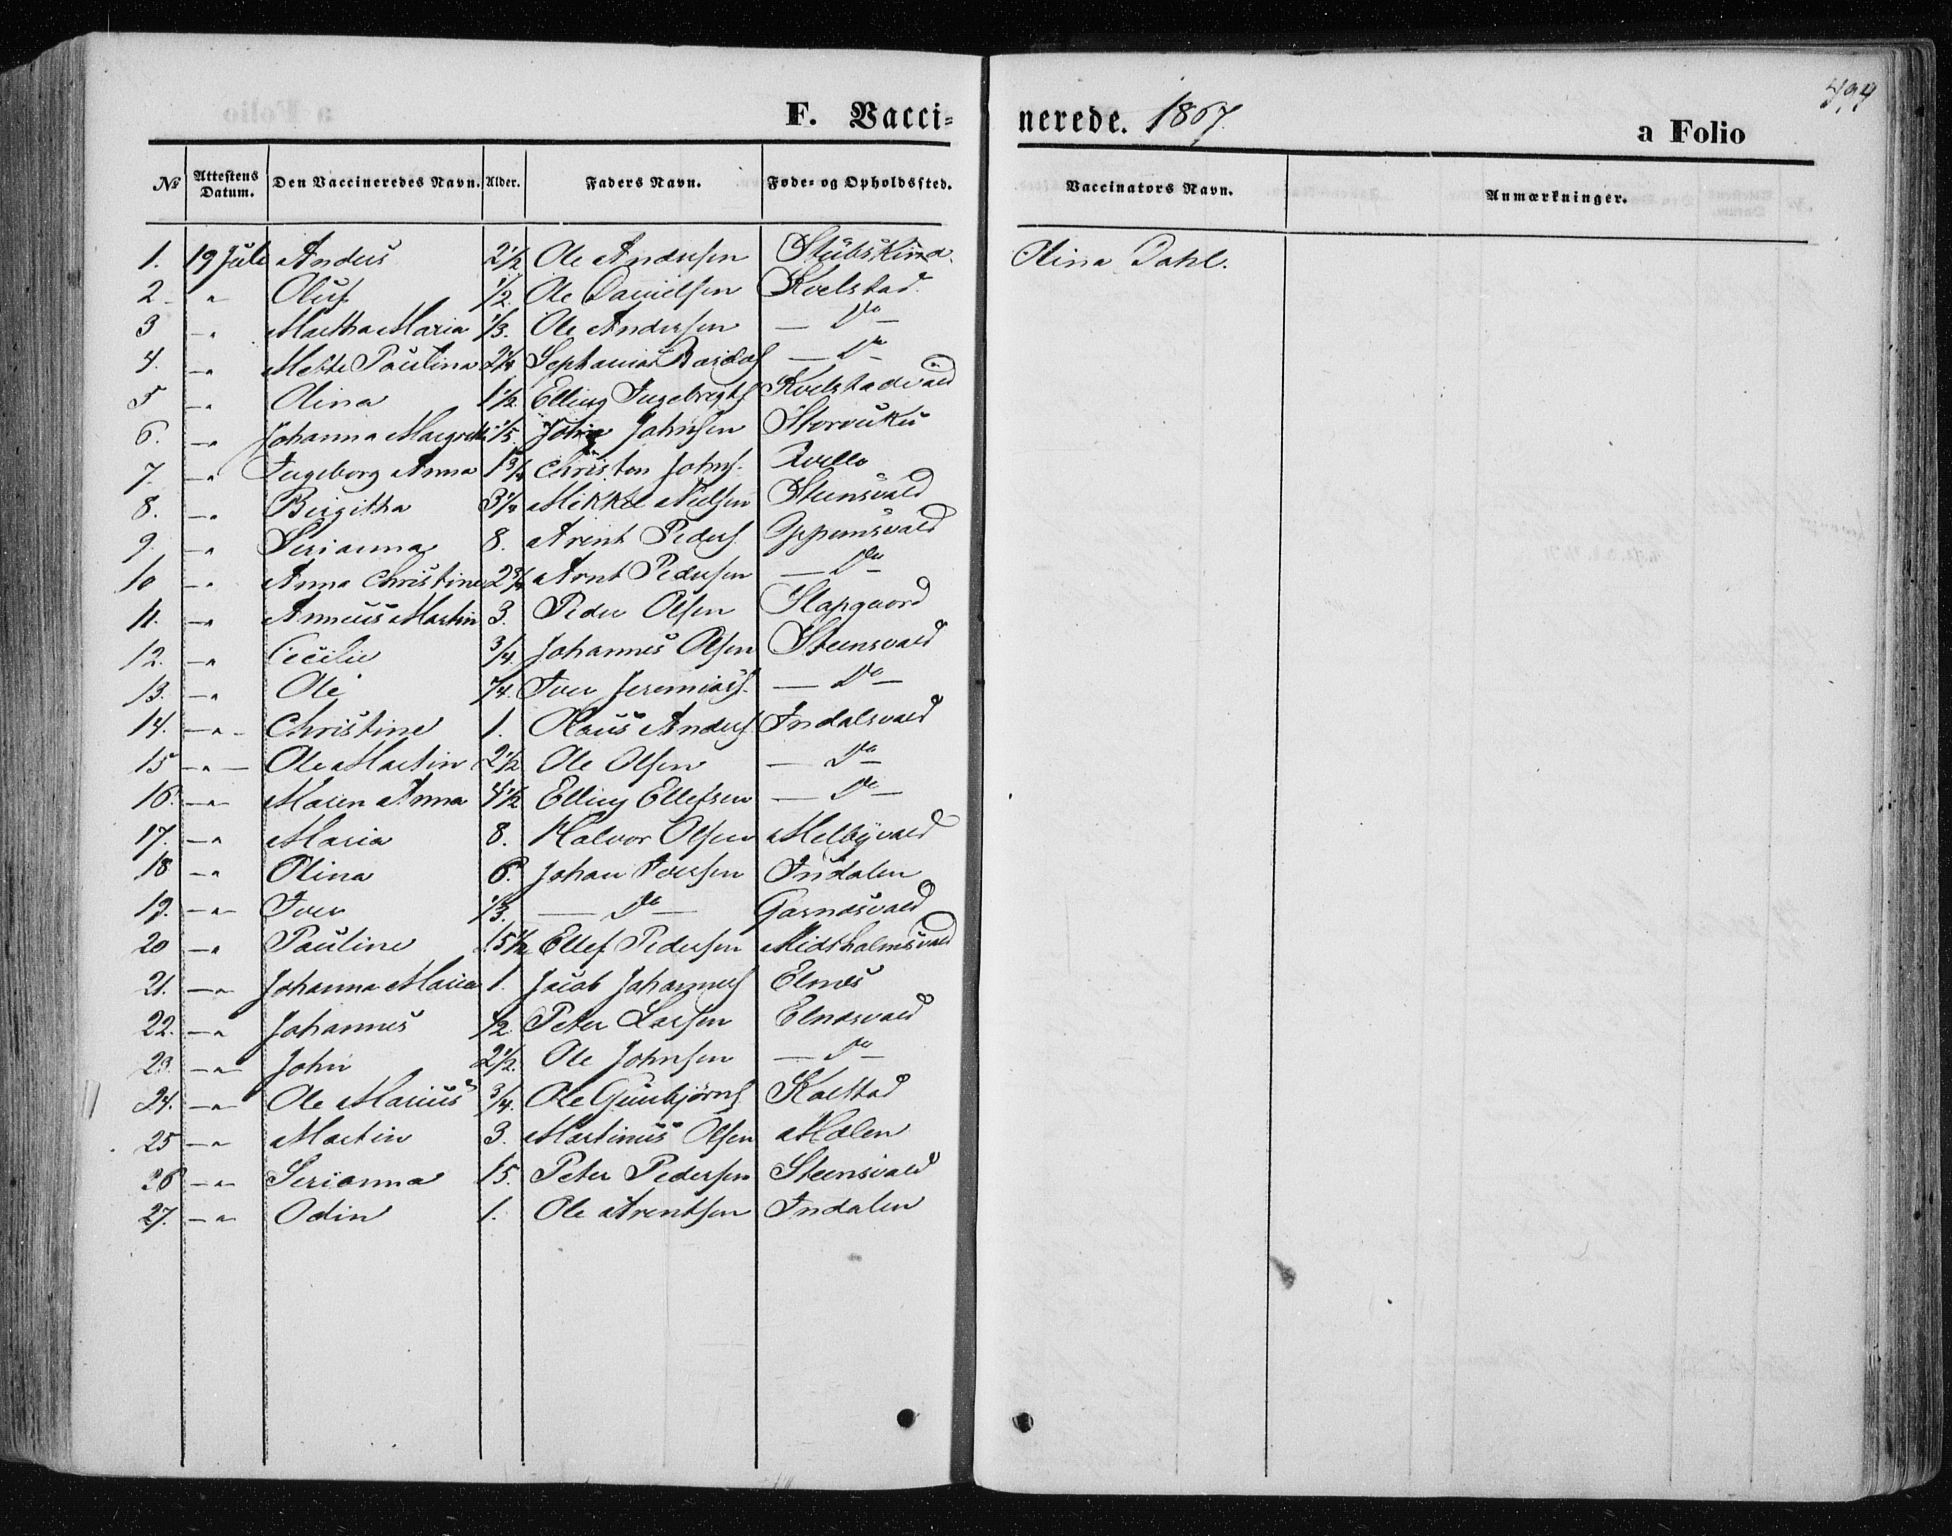 499
F. Vacci=nerede. 1867.
a Folio
No Attestens Datum. Den Vaccineredes Navn. Alder. Faders Navn. Føde= og Opholdssted. Vaccinators Navn. Anmærkninger.
1. 19 Juli Anders 2 1/2 Ole Andersen Stubskind Olina Dahl.
2 " Oluf 1/2. Ole Danielsen Kvelstad
3 " Martha Maria 1/3. Ole Andersen — Do —
4. " Mette Paulina 2 1/4 Sephanias Bardos — Do —
5 " Olina 1 1/2 Elling Ingebrigts Kvelstadvald
6. " Johanna Margrete 1/5. John Johnsen Storvuku
7. " Ingeborg Anna 1 3/4 Christen Johns. Qvello
8. " Birgitha 3 1/4 Mikkel Nielsen Steensvald
9. " Serianna 8. Arent Peders Yppernsvald
10 " Anna Christine 2 3/4 Arnt Pedersen — Do —
11. " Anneus Martin 3. Peder Olsen Slapgaard
12. " Cecilie 3/4. Johannes Olsen Steensvald
13. " Ole 1/4. Iver Jeremias. — Do —
14. " Christine 1. Klaus Anders Indalsvald
15 " Ole Martin 2 1/2 Ole Olsen — Do —
16. " Maren Anna 4 1/2 Elling Ellefsen — Do —
17. " Maria 8. Halvor Olsen Melbyvald
18 " Olina 6. Johan Iversen Indalen
19. " Iver 1/3. — Do — Garnæsvald
20 " Pauline 15 1/2 Ellef Pedersen Midtholmsvald
21. " Johanna Maria 1. Jacob Johannes Elnes
22. " Johannes 1/2. Peter Larsen Elnæsvald
23. " John 2 1/2. Ole Johnsen — Do —
24. " Ole Marius 3/4. Ole Gunbjørns Kolstad
25 " Martin 3. Martinus Olsen Molen
26 " Serianna 15. Peter Pedersen Steensvald
27. " Odin 1. Ole Arentsen Indalen